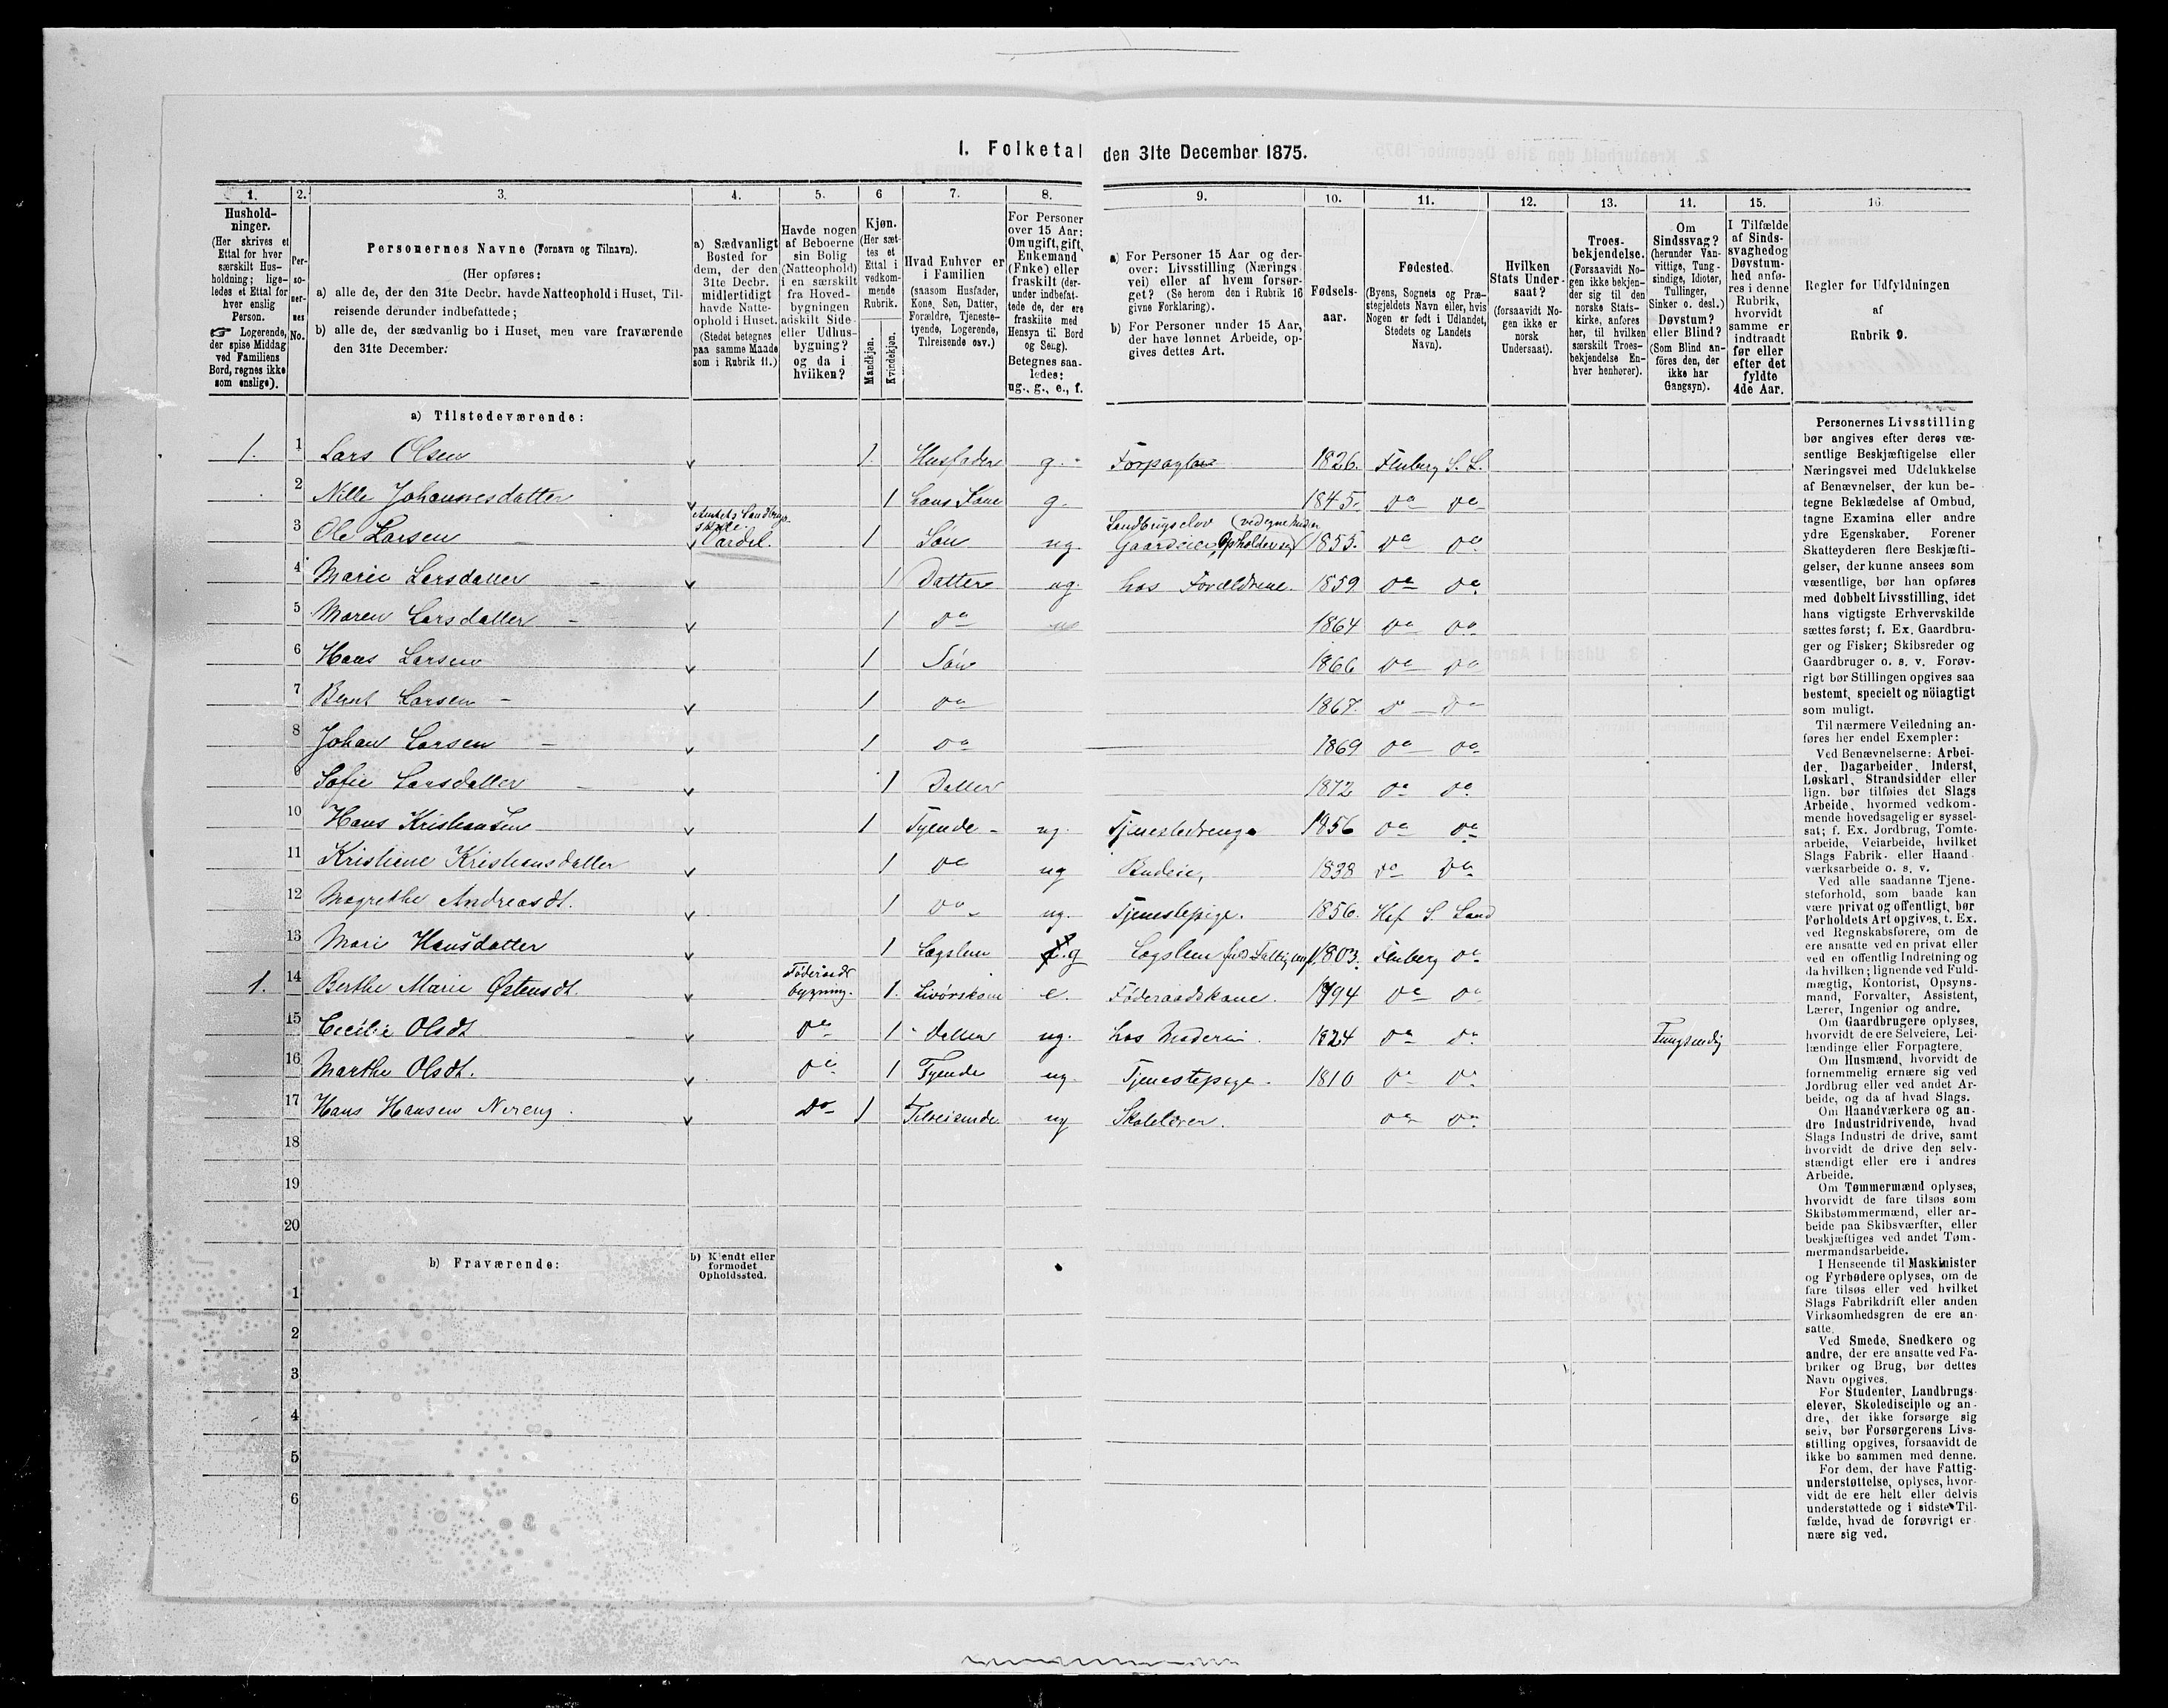 1. Folketal den 31te December 1875.
1. 2. 3. 4. 5. 6 7. 8. 9. 10. 11. 12. 13. 14. 15. 16.
Hushold-
ninger.
(Her skrives et
Ettal for hver
særskilt Hus-
holdning; lige-
ledes et Ettal for
hver enslig
Person.
☞ Logerende,
der spise Middag
ved Familiens
Bord, regnes ikke
som enslige).
Per-
so-
ner-
nes
No.
Personernes Navne (Fornavn og Tilnavn).
(Her opføres:
a) alle de, der den 31te Decbr. havde Natteophold i Huset, Til-
reisende derunder indbefattede;
b) alle de, der sædvanlig bo i Huset, men vare fraværende
den 31te December:
a) Sædvanligt
Bosted for
dem, der den
31te Decbr.
midlertidigt
havde Natte-
ophold i Huset.
(Stedet betegnes
paa samme Maade
som i Rubrik 11.)
Havde nogen
af Beboerne
sin Bolig
(Natteophold)
i en særskilt
fra Hoved-
bygningen
adskilt Side-
eller Udhus-
bygning?
og da i
hvilken?
Kjøn.
(Her sæt-
tes et
Ettal i
vedkom-
mende
Rubrik.
Mandkjøn.
Kvindekjøn.
Hvad Enhver er
i Familien
(saasom Husfader,
Kone, Søn, Datter,
Forældre, Tjeneste-
tyende, Logerende,
Tilreisende osv.)
For Personer
over 15 Aar:
Om ugift, gift,
Enkemand
(Enke) eller
fraskilt (der-
under indbefat-
tede de, der ere
fraskilte med
Hensyn til Bord
og Seng).
Betegnes saa-
ledes:
ug., g., e., f.
a) For Personer 15 Aar og der-
over: Livsstilling (Nærings-
vei) eller af hvem forsør-
get? (Se herom den i Rubrik 16
givne Forklaring).
b) For Personer under 15 Aar,
der have lønnet Arbeide, op-
gives dettes Art.
Fødsels-
aar.
Fødested.
(Byens, Sognets og Præ-
stegjeldets Navn eller, hvis
Nogen er født i Udlandet,
Stedets og Landets
Navn).
Hvilken
Stats Under-
saat?
(forsaavidt No-
gen ikke er
norsk
Undersaat).
Troes-
bekjendelse.
(Forsaavidt No-
gen ikke bekjen-
der sig til den
norske Stats-
kirke, anføres
her, til hvilken
særskilt Troes-
bekjendelse En-
hver henhører).
Om
Sindssvag?
(herunder Van-
vittige, Tung-
sindige, Idioter,
Tullinger,
Sinker o. desl.)
Døvstum?
eller Blind?
(Som Blind an-
føres den, der
ikke har
Gangsyn).
I Tilfælde
af Sinds-
svaghed og
Døvstum-
hed anfø-
res i denne
Rubrik,
hvorvidt
samme er
indtraadt
før eller
efter det
fyldte
4de Aar.
Regler for Udfyldningen
af
Rubrik 9.
a) Tilstedeværende:
1. 1 Lars Olsen v 1. Husfader g. Forpagter 1826. Fluberg S. L.
2 Nille Johannesdatter v 1 hans Kone g. 1845. do do
Amtets Landbrugs-
skole.
Landbrugselev
3 Ole Larsen v Vardal. 1 Søn ug. Gaardeier 1855. do do
4 Marie Larsdatter v 1 Datter ug. hos Forældrene. 1859 do do
5 Maren Larsdatter v 1 do 1864 do do
6 Hans Larsen v 1 Søn 1866 do do
7 Bernt Larsen v 1 do 1867. do do
8 Johan Larsen v 1 do 1869 do do
9 Sofie Larsdatter v 1 Datter 1872 do do
10 Hans Kristiansen v 1 Tyende ug. Tjenestedreng 1856 do do
11 Kristiane Kristiansdatter v 1 do ug Budeie, 1838 do do
12 Magrethe Andreasdt. v 1 do ug. Tjenestepige. 1856. Hof S. Land
13 Mari Hansdatter v 1 Lægslem g Lægslem 1803. Fluberg do
Føderaads
1. 14 Berthe Marie Østensdt. v bygning. 1. Livørskone e. Føderaadskone. 1794 do do
15 Cecilie Olsdt v do 1 Datter ug. hos Moderen. 1824 do do Tungsindig
16 Marthe Olsdt. v do 1 Tyende ug. Tjenestepige. 1810 do do
17 Hans Hansen Nereng. v do 1 Tilreisende ug Skolelærer. do do
18
19
20
b) Fraværende:
b) Kjendt eller
formodet
Opholdssted.
1
2
3
4
5
6
Personernes Livsstilling
bør angives efter deres væ-
sentlige Beskjæftigelse eller
Næringsvei med Udelukkelse
af Benævnelser, der kun be-
tegne Beklædelse af Ombud,
tagne Examina eller andre
ydre Egenskaber. Forener
Skatteyderen flere Beskjæfti-
gelser, der kunne ansees som
væsentlige, bør han opføres
med dobbelt Livsstilling, idet
hans vigtigste Erhvervskilde
sættes først; f. Ex. Gaardbru-
ger og Fisker; Skibsreder og
Gaardbruger o. s. v. Forøv-
rigt bør Stillingen opgives saa
bestemt, specielt og nöiagtigt
som muligt.
Til nærmere Veiledning an-
føres her endel Exempler:
Ved Benævnelserne: Arbei-
der, Dagarbeider, Inderst,
Løskarl, Strandsidder eller
lign. bør tilføies det Slags
Arbeide, hvormed vedkom-
mende hovedsagelig er syssel-
sat; f. Ex. Jordbrug, Tomte-
arbeide, Veiarbeide, hvilket
Slags Fabrik- eller Haand-
værksarbeide o. s. v.
Ved alle saadanne Tjene-
steforhold, som baade kan
være privat og offentligt, bør
Forholdets Art opgives, t. Ex.
ved Regnskabsførere, om de
ere ansatte ved en privat eller
ved en offentlig Indretning og
da hvilken; lignende ved Fuld-
mægtig, Kontorist, Opsyns-
mand, Forvalter, Assistent,
Lærer, Ingeniør og andre.
Om Gaardbrugere oplyses,
hvorvidt de ere Selveiere, Lei-
lændinge eller Forpagtere.
Om Husmænd, hvorvidt de
fornemmelig ernære sig ved
Jordbrug eller ved andet Ar-
beide, og da af hvad Slags.
Om Haandværkere og an-
dre Industridrivende, hvad
Slags Industri de drive, samt
hvorvidt de drive den selv-
stændigt eller ere i andres
Arbeide.
Om Tømmermænd oplyses,
hvorvidt de fare tilsøs som
Skibstømmermænd, eller ar-
beide paa Skibsværfter, eller
beskjæftiges ved andet Tøm-
mermandsarbeide.
I Henseende til Maskinister
og Fyrbødere oplyses, om de
fare tilsøs eller ved hvilket
Slags Fabrikdrift eller anden
Virksomhedsgren de ere an-
satte.
Ved Smede, Snedkere og
andre, der ere ansatte ved Fa-
briker og Brug, bør dettes
Navn opgives.
For Studenter, Landbrugs-
elever, Skoledisciple og an-
dre, der ikke forsørge sig
selv, bør Forsørgerens Livs-
stilling opgives, forsaavidt de
ikke bo sammen med denne.
For dem, der have Fattig-
understøttelse, oplyses, hvor-
vidt de ere helt eller delvis
understøttede og i sidste Til-
fælde, hvad de forøvrigt er-
nære sig ved.